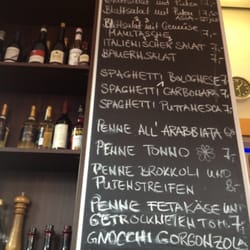 Blattsalat mit Puten 7,-
Blattsalat mit Gemüse
Maultasche 7,-
Italienischer Salat 7,-
Bauernsalat 7,-
Spaghetti Bolognese 7,-
Spaghetti Carbonara
Spaghetti Puttanesca 7,-
Penne all' Arabbiata
Penne Tonno 7,-
Penne Brokkoli und
Putenstreifen 8,-
Penne Fetakäse und
getrockneten Tom. 7,-
Gnocchi Gorgonzola